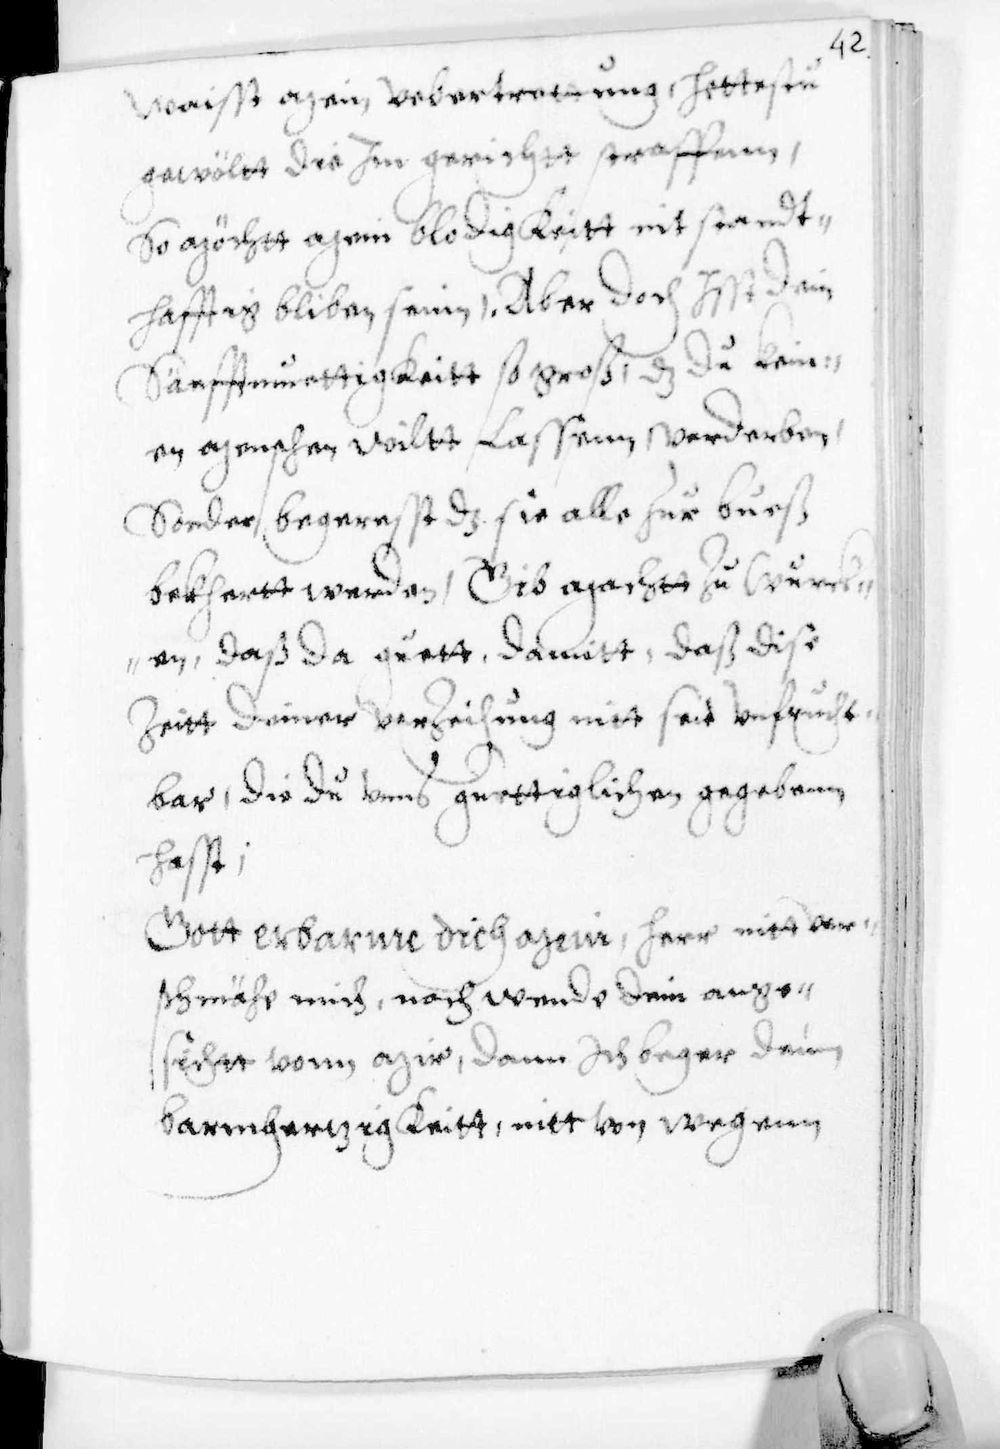 42.
waisst mein vebertrettung, hettestu
gewöltt die Im gerichtt straffenn,
So möchtt mein blodigkeitt nit standt=
hafftig bliben seinn, Aber doch Isst dein
Sänfftmuettigkeitt so groß, dz du kein=
en menschen wiltt Lassenn verderben,
Sonder begeresst dz sie alle zur bueß
bekhertt werden, Gib machtt zu wurck=
=en, daß da guett, damitt, daß dise
Zeitt deiner verzeihung nitt seie vnfrucht=
bar, die du vnns guettiglichen gegebenn
hasst,
Gott erbarme dich mein, herr nitt ver=
schmähe mich, noch wende dein ange=
sichtt vonn mir, dann Ich beger deinn
barmhertzigkeitt, nitt von wegenn